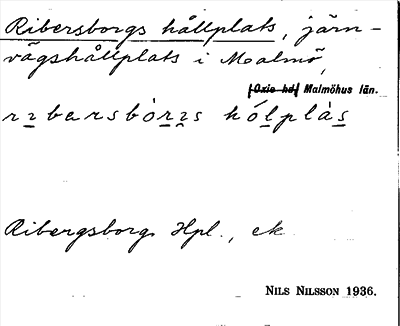 Ribersborgs hållplats, järn-
vägshållplats i Malmö,
[Oxie hd] Malmöhus län.
rɪbarsbòrɪs hólplàs
Ribergsborgs Hpl., ek
NILS NILSSON 1936.